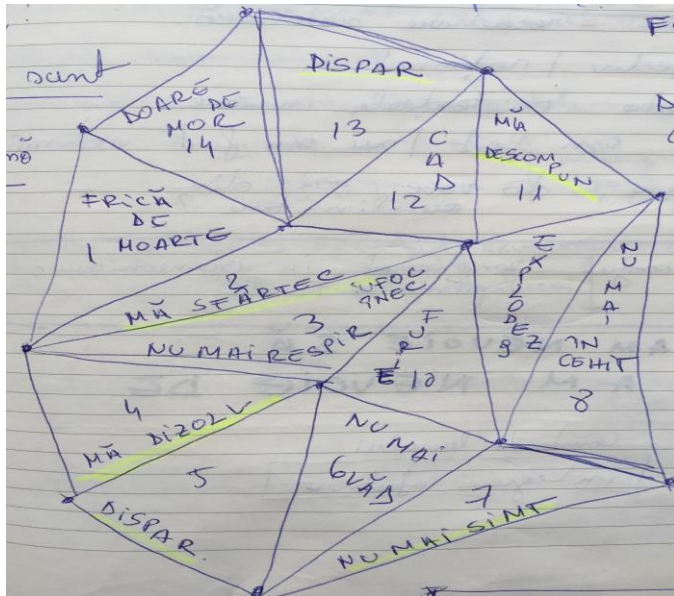 sant
DISPAR
DOARE
DE
MOR
14
13
CAD
12
MĂ
DESCOMPUN
11
FRICĂ
DE
1 MOARTE
2
MĂ SFÂRTEC
SUFOC
ÎNEC
3
NU MAI RESPIR
FURIE
10
EXPLODEZ
9
NU MAI
8
4
MĂ DIZOLV
5
DISPAR.
NU MAI
6 VĂD
7
NU MAI SIMT